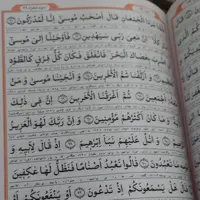 الْجَمْعَانِ قَالَ أَصْحَابُ مُوسَىٰ إِنَّا لَمُدْرَكُونَ ﴿٦١﴾
إِنَّ مَعِيَ رَبِّي سَيَهْدِينِ ﴿٦٢﴾ فَأَوْحَيْنَا إِلَىٰ مُوسَىٰ
بِعَصَاكَ الْبَحْرَ فَانْفَلَقَ فَكَانَ كُلُّ فِرْقٍ كَالطَّوْدِ
﴿٦٣﴾ وَأَزْلَفْنَا ثَمَّ الْآخَرِينَ ﴿٦٤﴾ وَأَنْجَيْنَا مُوسَىٰ وَمَنْ
أَجْمَعِينَ ﴿٦٥﴾ ثُمَّ أَغْرَقْنَا الْآخَرِينَ ﴿٦٦﴾ إِنَّ فِي ذَٰلِكَ
وَمَا كَانَ أَكْثَرُهُمْ مُؤْمِنِينَ ﴿٦٧﴾ وَإِنَّ رَبَّكَ لَهُوَ الْعَزِيزُ
﴿٦٨﴾ وَاتْلُ عَلَيْهِمْ نَبَأَ إِبْرَاهِيمَ ﴿٦٩﴾ إِذْ قَالَ لِأَبِيهِ وَ
مَا تَعْبُدُونَ ﴿٧٠﴾ قَالُوا نَعْبُدُ أَصْنَامًا فَنَظَلُّ لَهَا عَاكِفِينَ
قَالَ هَلْ يَسْمَعُونَكُمْ إِذْ تَدْعُونَ ﴿٧٢﴾ أَوْ يَنْفَعُونَكُمْ أَوْ